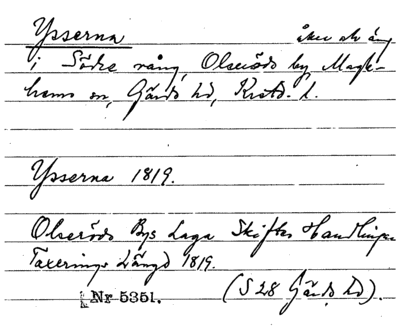 Ysserna åker och äng
i Södre vång, Olseröds by, Magle-
hems sn, Gärds hd, Krstd. l.
Ysserna 1819.
Olseröds Bys Laga Skiftes Handlingar
Taxerings Längd 1819.
Nr 5351. (S 28 Gärds hd).